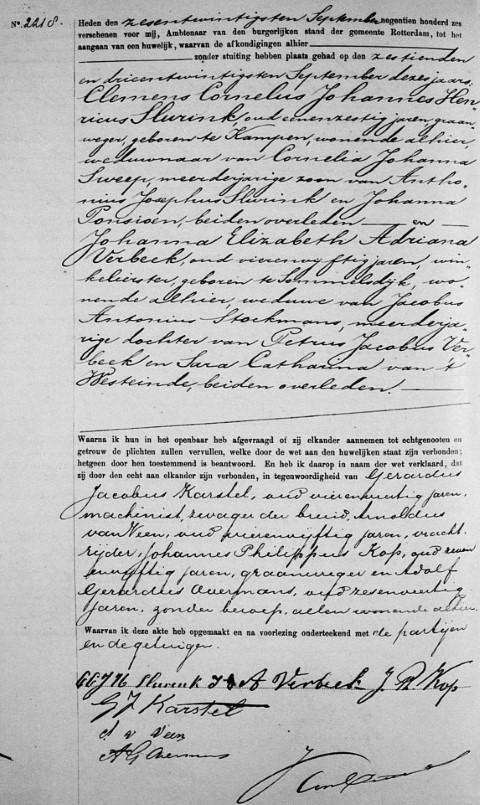 No. 2218.
Heden den zesentwintigsten September negentien honderd zes
verschenen voor mij, Ambtenaar van den burgerlijken stand der gemeente Rotterdam, tot het
aangaan van een huwelijk, waarvan de afkondigingen alhier
zonder stuiting hebben plaats gehad op den zestienden
en drieentwintigsten September dezes jaars,
Clemens Cornelius Johannes Hen-
ricus Slurink, oud eenenzestig jaren, graan-
weger, geboren te Kampen, wonende alhier,
weduwnaar van Cornelia Johanna
Sweep, meerderjarige zoon van Antho-
nius Josephus Slurink en Johanna
Ponsioen, beiden overleden en
Johanna Elizabeth Adriana
Verbeek, oud vierenvyftig jaren, win-
kelierster, geboren te Sommelsdyk, wo-
nende alhier, weduwe van Jacobus
Antonius Stockmans, meerderja-
rige dochter van Petrus Jacobus Ver-
beek en Sara Catharina van 't
Westeinde, beiden overleden.
Waarna ik hun in het openbaar heb afgevraagd of zij elkander aannemen tot echtgenooten en
getrouw de plichten zullen vervullen, welke door de wet aan den huwelijken staat zijn verbonden;
hetgeen door hen toestemmend is beantwoord. En heb ik daarop in naam der wet verklaard, dat
zij door den echt aan elkander zijn verbonden, in tegenwoordigheid van Gerardus
Jacobus Karstel, oud vierenveertig jaren,
machinist, zwager der bruid, Arnoldus
van Veen, oud vierenvijftig jaren, vracht-
rijder, Johannes Philippus Kop, oud zeven
envyftig jaren, graanweger en Adolf
Gerardus Avermans, oud zesenveertig
jaren, zonder beroep, allen wonende alhier.
Waarvan ik deze akte heb opgemaakt en na voorlezing onderteekend met de partijen
en de getuigen.
CCJH Slurink J E A Verbeek J. P. Kop
G J Karstel
A v Veen
A G Avermans